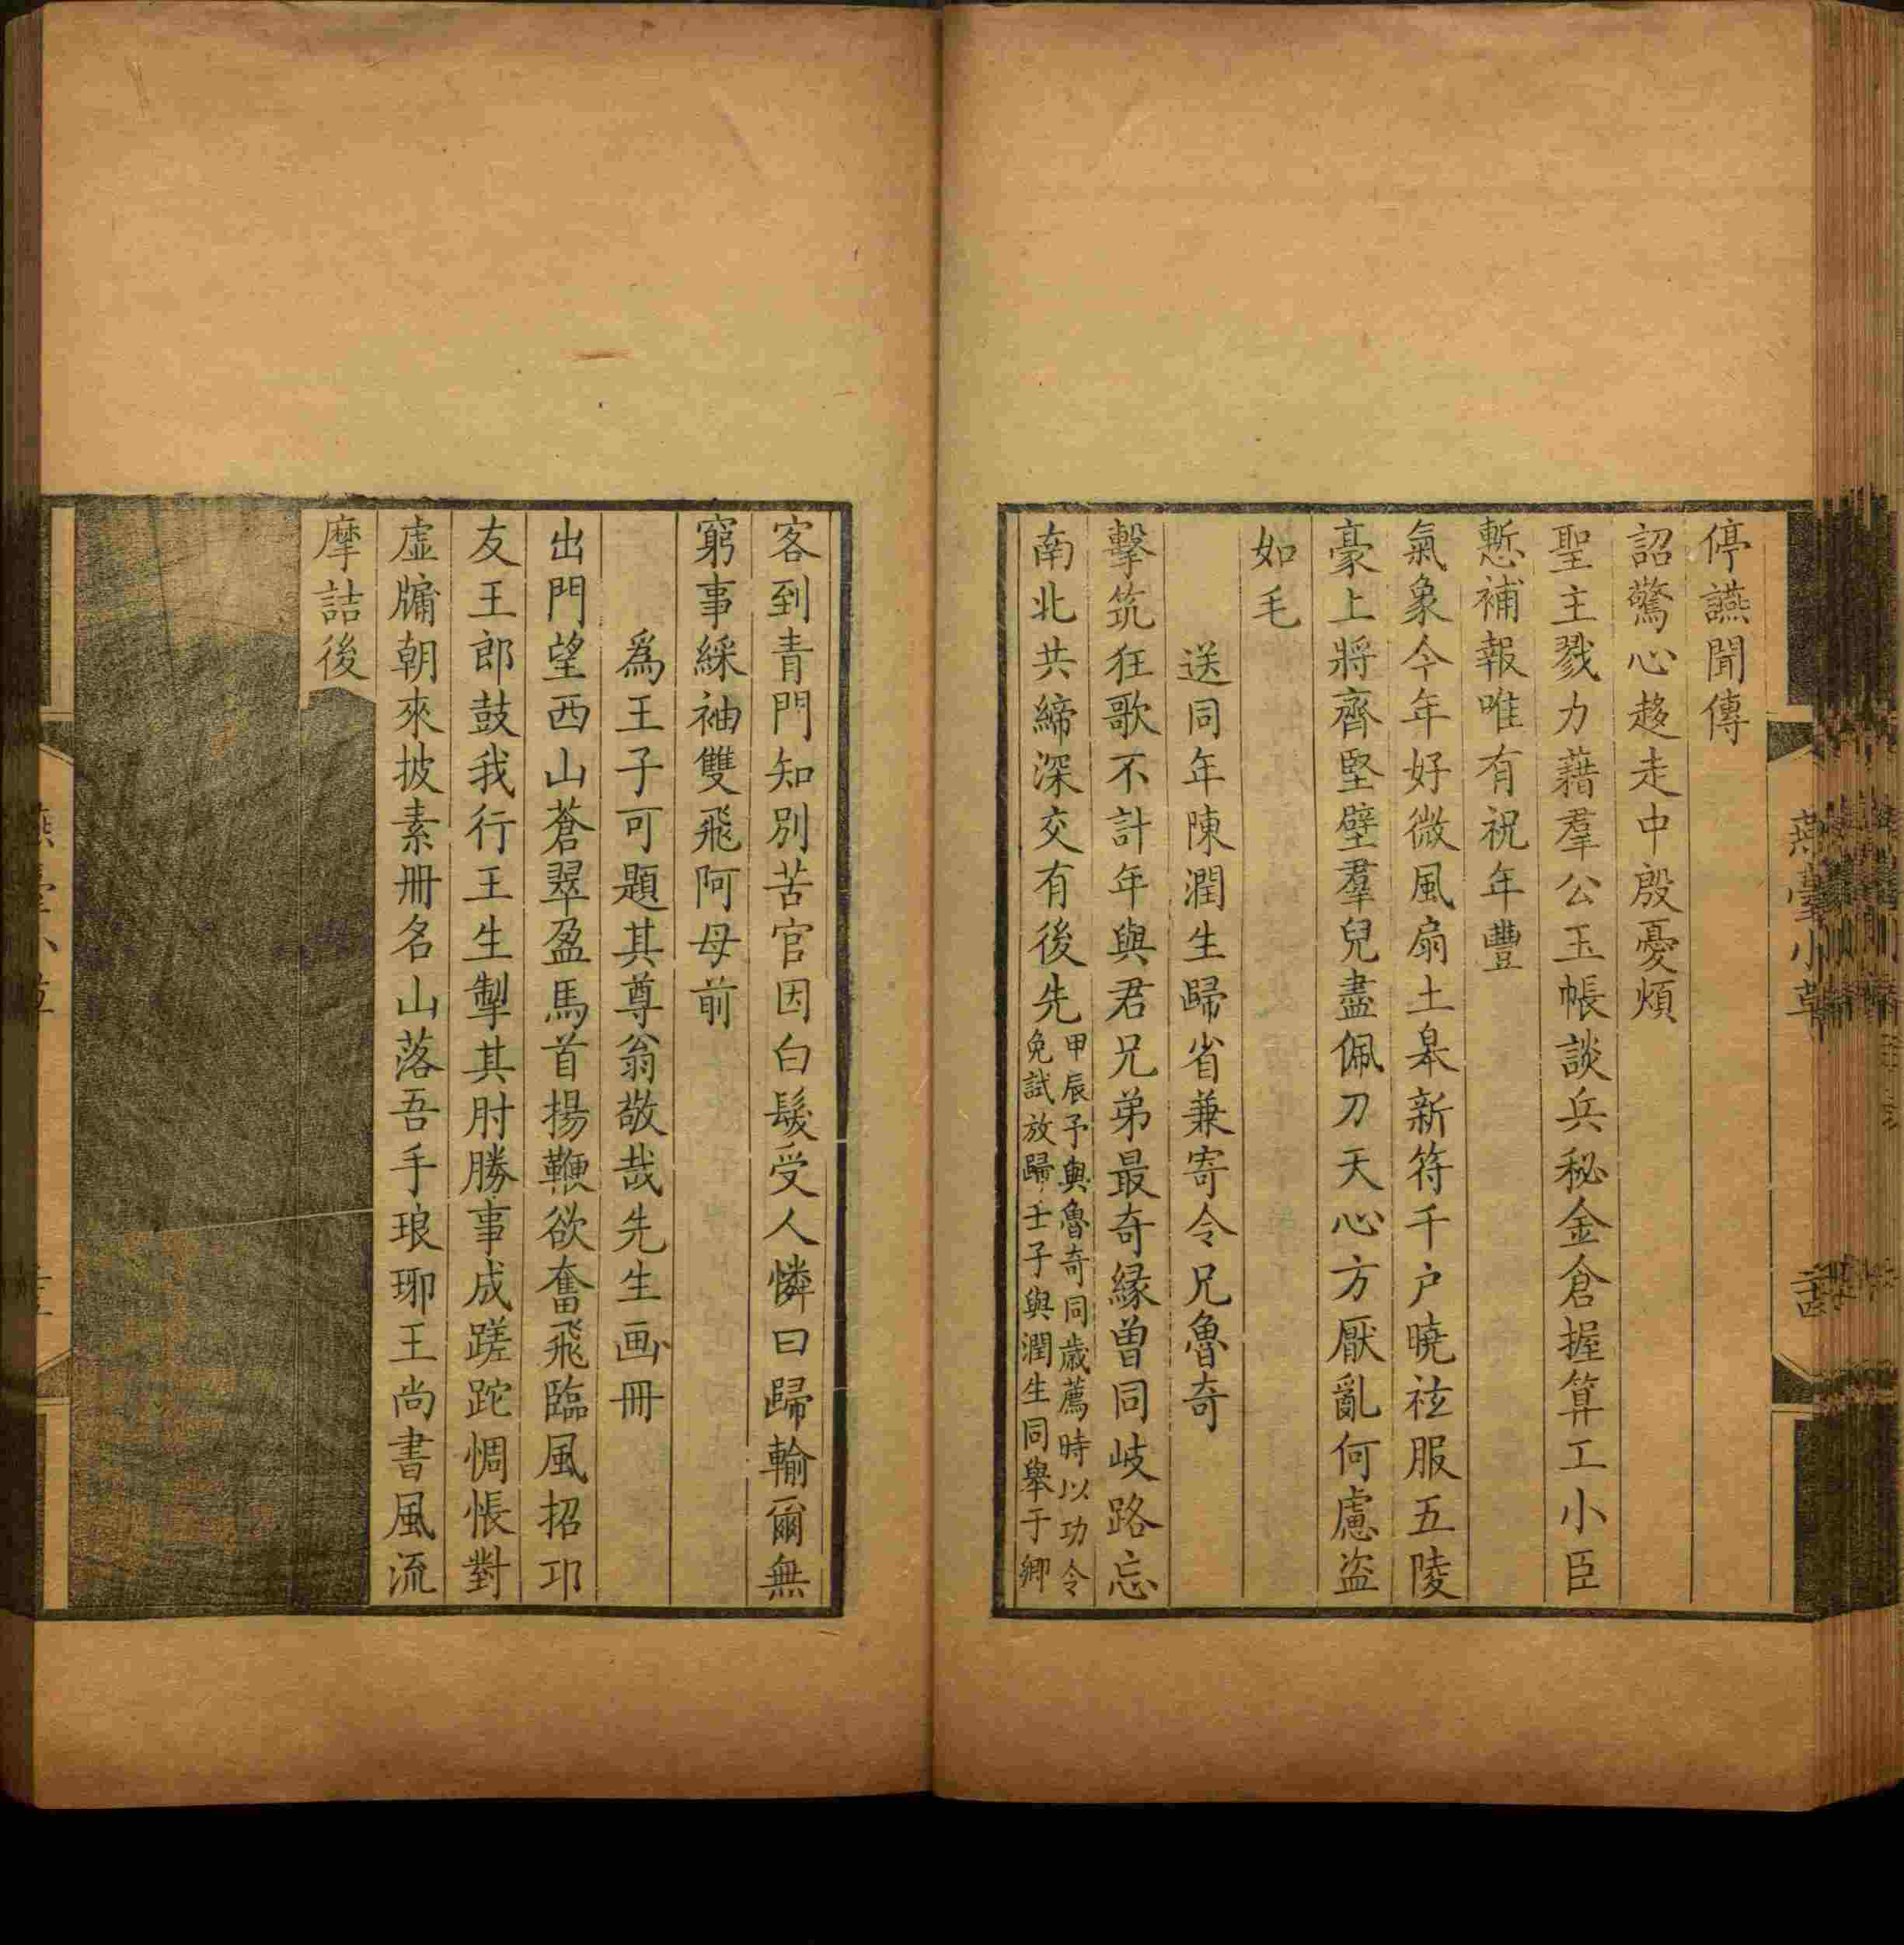 停讌聞傳
詔驚心趍走中殷憂煩
聖主戮力藉羣公玉帳談兵秘金倉握算工小臣
慙補報唯有祝年豐
氣象今年好微風扇土皋新符千户曉袨服五陵
豪上將齊堅壁羣兒盡佩刀天心方厭亂何慮盗
如毛
送同年陳潤生歸省兼寄令兄魯奇
擊筑狂歌不計年與君兄弟最奇緣曽同岐路忘
南北共締深交有後先
甲辰予與魯奇同歲薦時以功令
免試放歸壬子與潤生同舉于鄉
燕臺小草
客到青門知別苦官因白髮受人憐曰歸輸爾無
窮事綵袖雙飛阿母前
爲王子可題其尊翁敬哉先生画冊
出門望西山蒼翠盈馬首揚鞭欲奮飛臨風招卭
友王郎鼓我行王生掣其肘勝事成蹉跎惆悵對
虚牖朝來披素冊名山落吾手琅琊王尚書風流
摩詰後